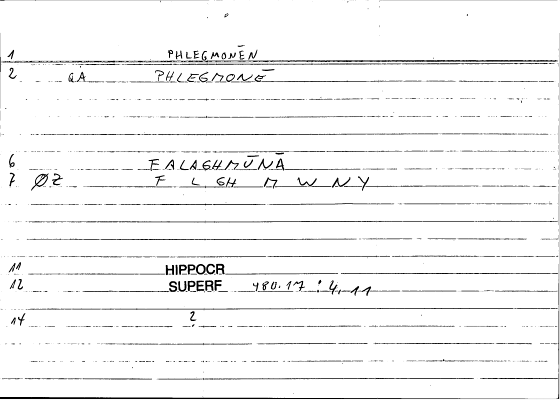 1 PHLEGMONĒN
2 GA PHLEGMONĒ
6 FALAGHMŪNĀ
7 ØZ F L GH M W N Y
11 HIPPOCR
12 SUPERF 480.17 : 4, 11
14 ?